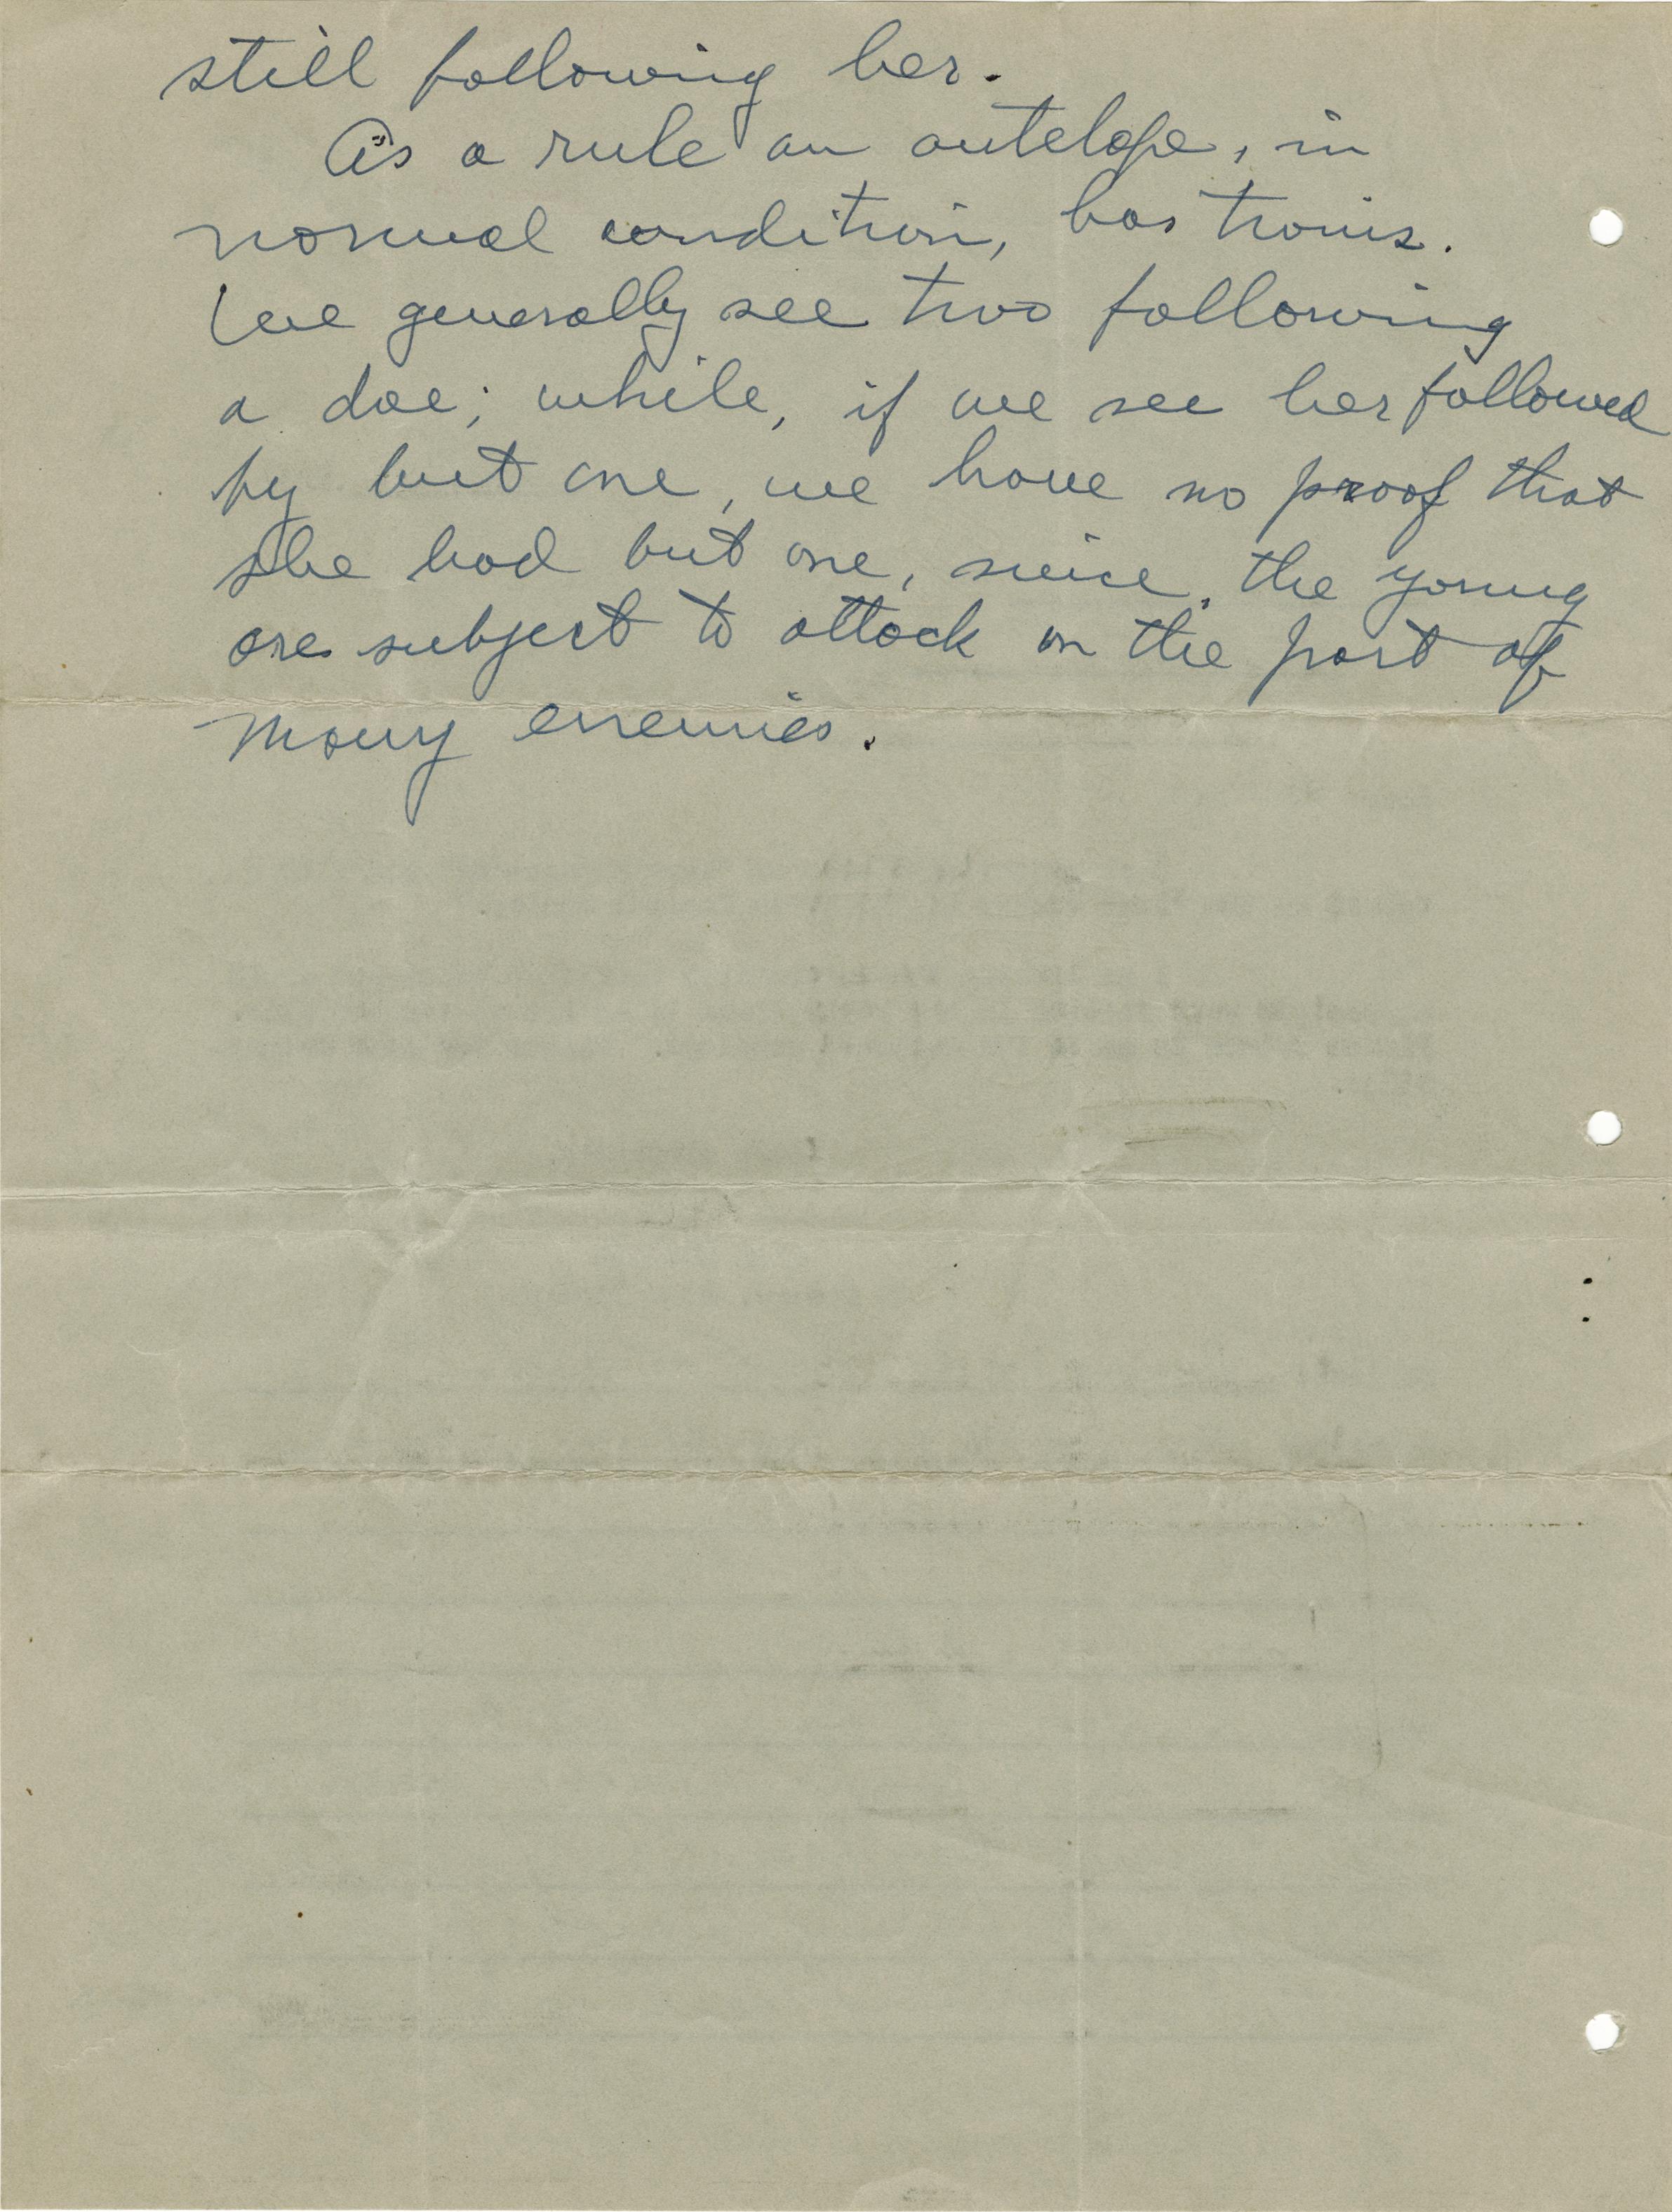 still following her.
As a rule an antelope, in
normal condition, has twins.
We generally see two following
a doe; while, if we see her followed
by but one, we have no proof that
she had but one, since, the young
are subject to attack on the part of
many enemies.